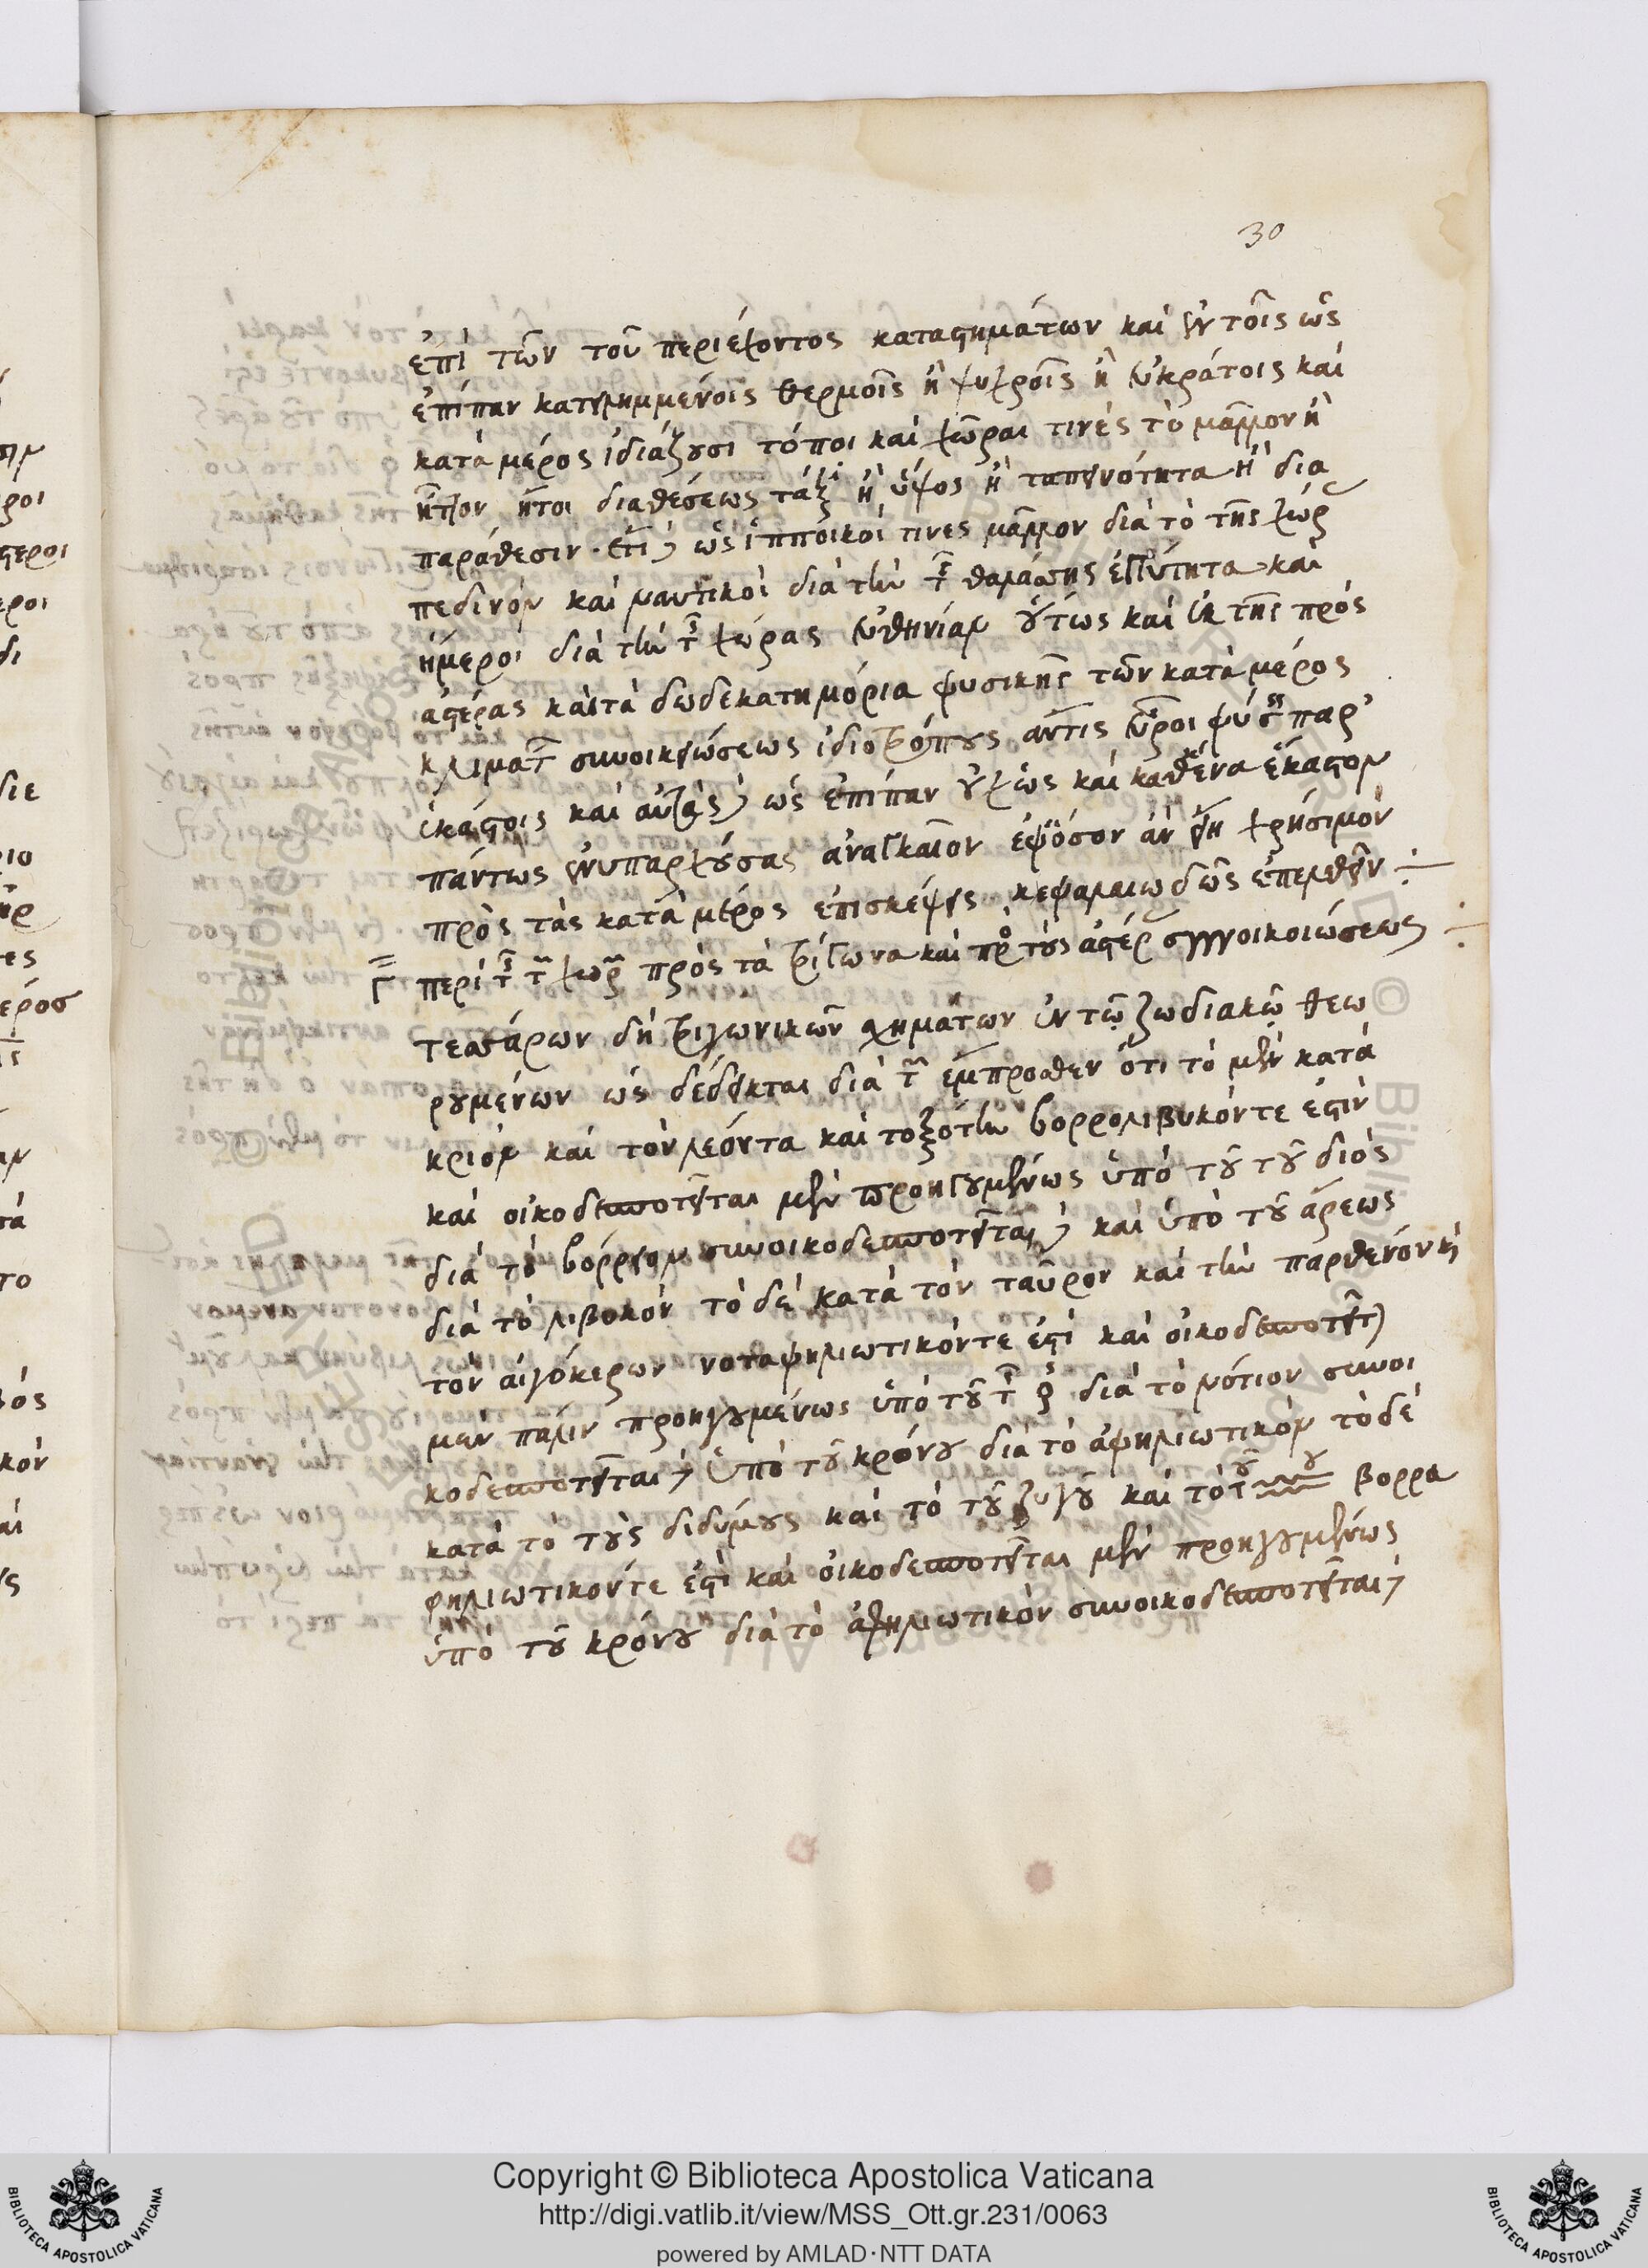 30
ἐπὶ τῶν τοῦ περιέχοντος καταστημάτων καὶ ἐν τοῖς ὡς
ἐπίπαν κατειλημμένοις θερμοῖς ἢ ψυχροῖς ἢ εὐκράτοις καὶ
κατὰ μέρος ἰδιάζουσι τόποι καὶ χῶραι τινὲς τὸ μᾶλλον ἢ
ἧττον ἤτοι διαθέσεως τάξει ἢ ὕψος ἢ ταπεινότητα ἢ δια
παράθεσιν. ἔτι δὲ ὡς ἱππόικοί τινες μᾶλλον διὰ τὸ τῆς χώρας
πεδινὸν καὶ ναυτικοὶ διὰ τὴν τῆς θαλάσσης ἐγγύτητα καὶ
ἥμεροι διὰ τὴν τῆς χώρας εὐθηνίαν οὕτως καὶ ἐκ τῆς πρὸς
ἀστέρας καὶ τὰ δωδεκατημόρια φυσικῆς τῶν κατὰ μέρος
κλιμάτων συνοικειώσεως ἰδιοτρόπους ἄν τις εὕροι φύσεις παρ'
ἑκάστοις καὶ αὐτὰς δὲ ὡς ἐπίπαν οὐχ ὡς καὶ καθένα ἕκαστον
πάντως ἐνυπαρχούσας ἀναγκαῖον ἐφ' ὅσον ἂν εἴη χρήσιμον
πρὸς τὰς κατὰ μέρος ἐπισκέψεις κεφαλαιωδῶς ἐπελθεῖν
Γ περὶ τῆς τῶν χωρῶν πρὸς τὰ τρίγωνα καὶ πρὸς τοὺς ἀστέρας συγγνοικοιώσεως
τεσσάρων δὴ τριγωνικῶν σχημάτων ἐν τῷ ζωδιακῷ θεω
ρουμένων ὡς δέδεικται διὰ τῶν ἔμπροσθεν ὅτι τὸ μὲν κατὰ
κριὸν καὶ τὸν λέοντα καὶ τοξότην βορρολιβυκόν τε ἐστὶν
καὶ οἰκοδεσποτεῖται μὲν προηγουμένως ὑπὸ τοῦ τοῦ διὸς
διὰ τὸ βόρρειον συνοικοδεσποτεῖται δὲ καὶ ὑπὸ τοῦ ἄρεως
διὰ τὸ λιβυκόν τὸ δὲ κατὰ τὸν ταῦρον καὶ τὴν παρθένον καὶ
τὸν αἰγόκερων νοταφηλιωτικόν τε ἐστὶ καὶ οἰκοδεσποτεῖται
μὲν πάλιν προηγουμένως ὑπὸ τοῦ τῆς ♀ διὰ τὸ νότιον συνοι
κοδεσποτεῖται δὲ ὑπὸ τοῦ κρόνου διὰ τὸ ἀφηλιωτικὸν τὸ δὲ
κατὰ τὸ τοὺς διδύμους καὶ τὸ τοῦ ζυγοῦ καὶ τὸ τοῦ ♒ βορρα
φηλιωτικόν τε ἐστὶ καὶ οἰκοδεσποτεῖται μὲν προηγουμένως
ὑπὸ τοῦ κρόνου διὰ τὸ ἀφηλιωτικὸν συνοικοδεσποτεῖται δὲ
Copyright © Biblioteca Apostolica Vaticana
http://digi.vatlib.it/view/MSS_Ott.gr.231/0063
powered by AMLAD·NTT DATA
BIBLIOTECA APOSTOLICA VATICANA
BIBLIOTECA APOSTOLICA VATICANA